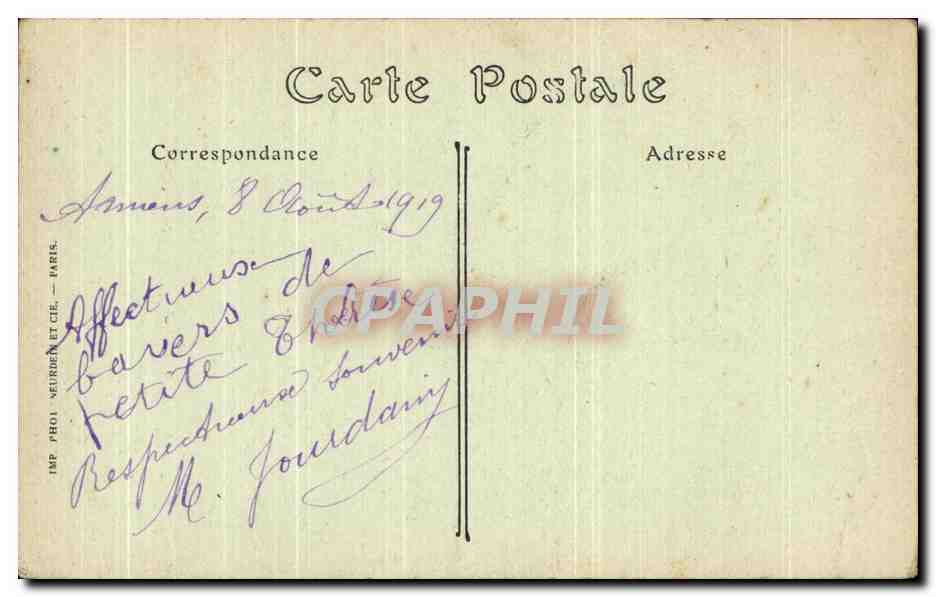 Carte Postale
Correspondance
Adresse
Amiens, 8 Août 1919
Affectueux
baisers de
petite Thérèse
Respectueux souvenir
M. Jourdain
IMP. PHOT. NEURDEIN ET CIE. — PARIS.
CPAPHIL